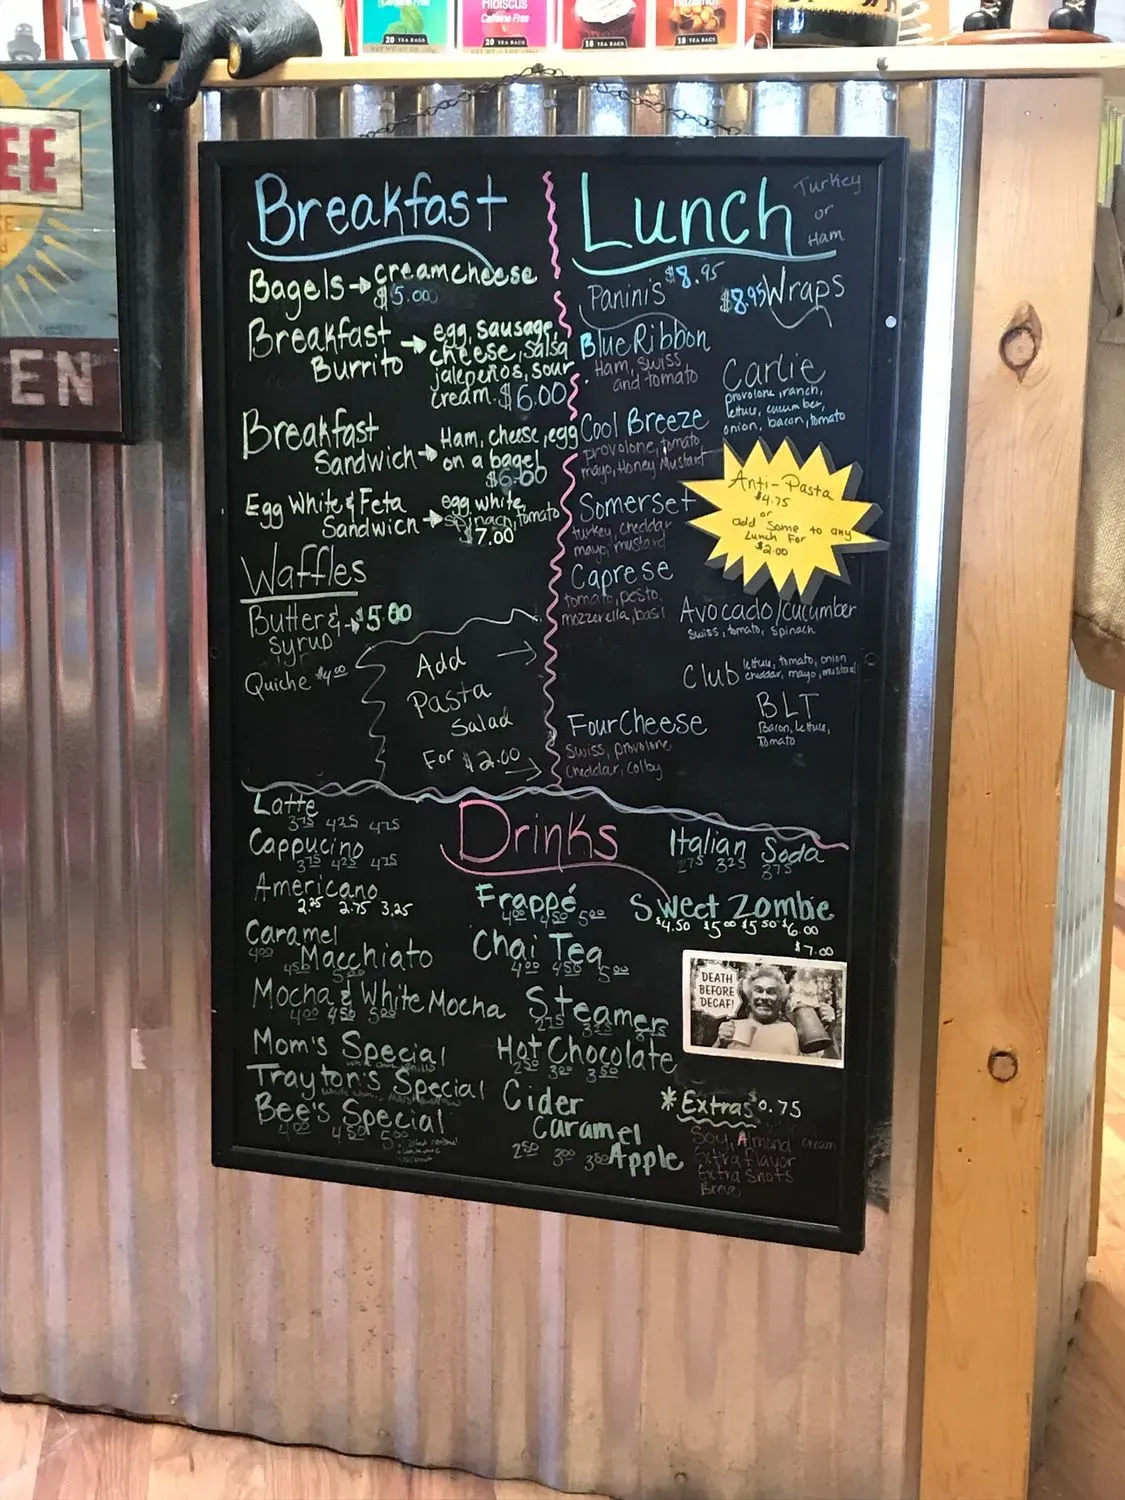 Caffeine Free
20 TEA BAGS
HIBISCUS
Caffeine Free
20 TEA BAGS
18 TEA BAGS
18 TEA BAGS
EE
EN
Breakfast
Bagels → cream cheese
$5.00
Breakfast
Burrito → egg, sausage,
cheese, salsa
jalepeños, sour
cream. $6.00
Breakfast
Sandwich → Ham, cheese, egg
on a bagel
$6.00
Egg White & Feta
Sandwich → egg white,
spinach, tomato
$7.00
Waffles
Butter & → $5.00
Syrup
Quiche $4.00
Add
Pasta
Salad
For $2.00
Lunch
Turkey
or
Ham
Panini's $8.95
Blue Ribbon
Ham, swiss
and tomato
Cool Breeze
provolone, tomato,
mayo, Honey Mustard
Somerset
turkey, cheddar
mayo, mustard
Caprese
tomato, pesto,
mozzerella, basil
Four Cheese
Swiss, provolone
Cheddar, Colby
$8.95 Wraps
Carlie
provolone, ranch,
lettuce, cucumber,
onion, bacon, tomato
Anti-Pasta
$4.75
or
add some to any
Lunch For
$2.00
Avocado/Cucumber
Swiss, tomato, spinach
Club lettuce, tomato, onion
cheddar, mayo, mustard
BLT
Bacon, lettuce,
Tomato
Drinks
Latte
3.75 4.25 4.75
Cappucino
3.75 4.25 4.75
Americano
2.25 2.75 3.25
Caramel
Macchiato
4.00 4.50 5.00
Mocha & White Mocha
4.00 4.50 5.00
Mom's Special
Trayton's Special
Bee's Special
4.00 4.50 5.00
Frappé
4.00 4.50 5.00
Chai Tea
4.00 4.50 5.00
Steamers
2.75 3.25 3.75
Hot Chocolate
2.50 3.00 3.50
Cider
Caramel
Apple
2.50 3.00 3.50
Italian Soda
2.75 3.25 3.75
Sweet Zombie
$4.50 $5.00 $5.50 $6.00
$7.00
DEATH
BEFORE
DECAF!
*Extras $0.75
Soy, Almond cream
Extra flavor
Extra Shots
Breve